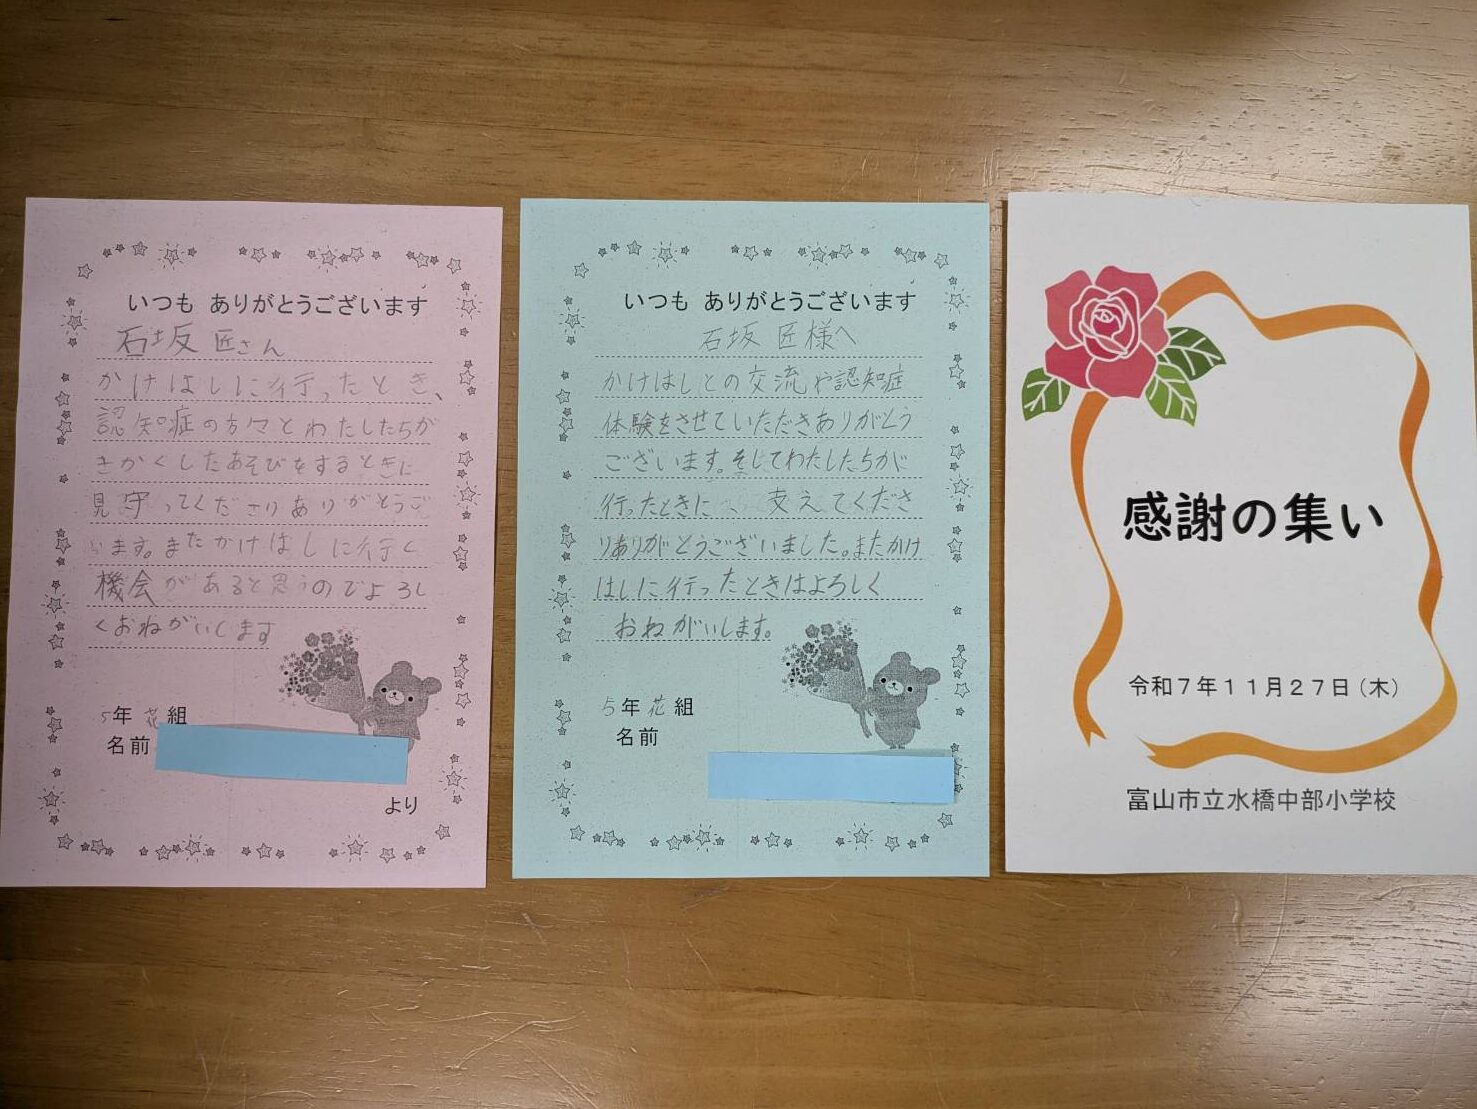 いつも ありがとうございます
石坂 匠さん
かけはしに行ったとき、
認知症の方々とわたしたちが
きかくしたあそびをするときに
見守ってくださりありがとうご
います。またかけはしに行く
機会があると思うのでよろし
くおねがいします
5年 花 組
名前
より
いつも ありがとうございます
石坂 匠様へ
かけはしとの交流や認知症
体験をさせていただきありがとう
ございます。そしてわたしたちが
行ったときに、支えてくださ
りありがとうございました。またかけ
はしに行ったときはよろしく
おねがいします。
5年 花 組
名前
感謝の集い
令和7年11月27日(木)
富山市立水橋中部小学校